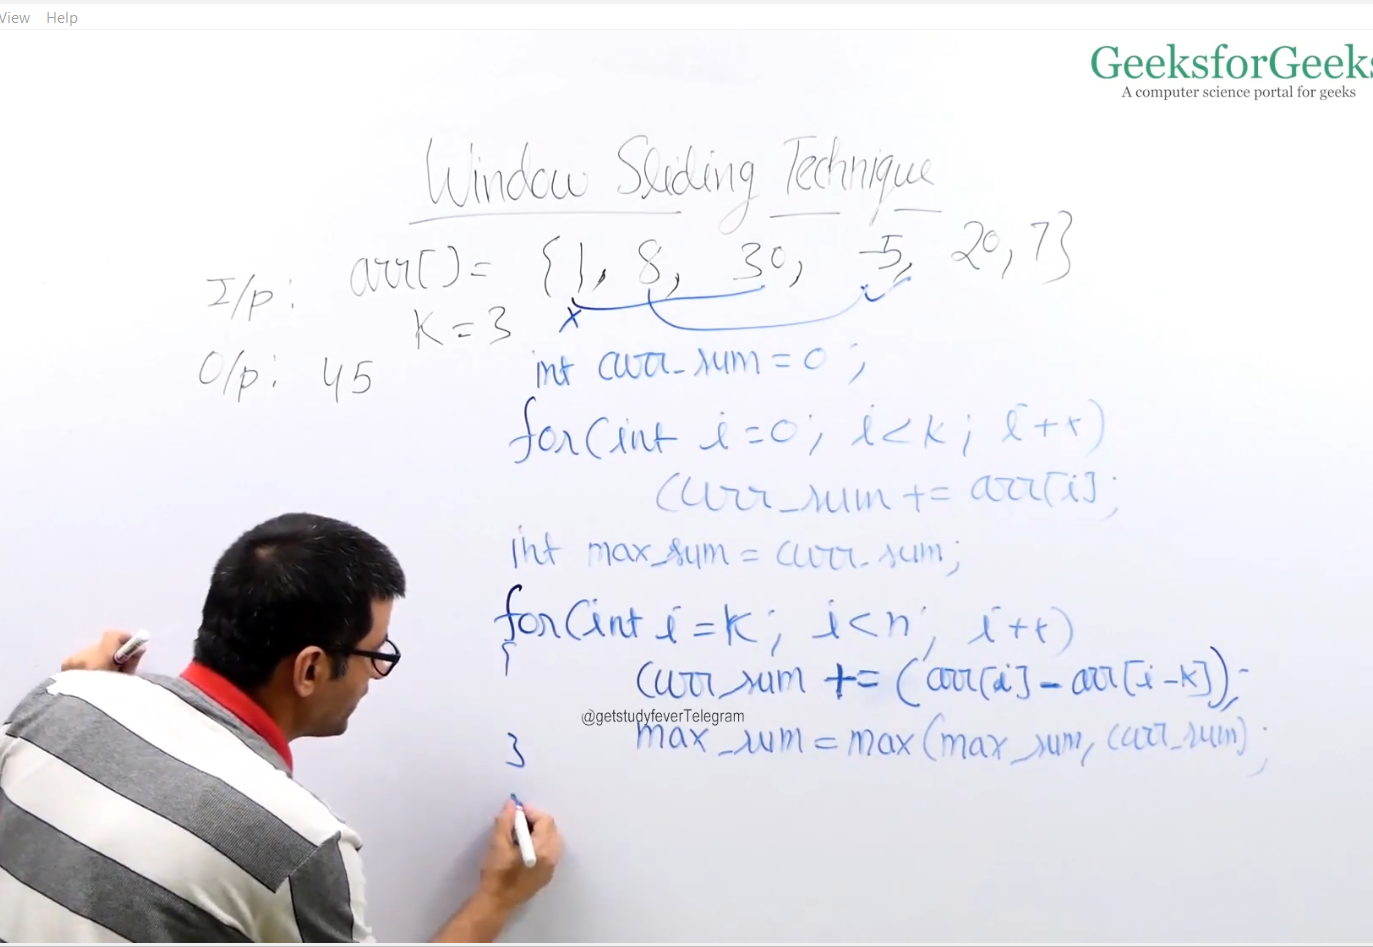 View Help
GeeksforGeeks
A computer science portal for geeks
Window Sliding Technique
I/p: arr[] = {1, 8, 30, -5, 20, 7}
K = 3 x
O/p: 45
int curr_sum = 0;
for(int i=0; i<k; i++)
curr_sum += arr[i];
int max_sum = curr_sum;
for(int i=k; i<n; i++)
{
curr_sum += (arr[i] - arr[i-k]);
@getstudyfeverTelegram
max_sum = max(max_sum, curr_sum);
}